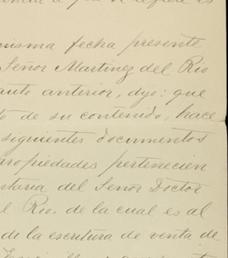 misma fecha presente
Señor Martinez del Rio
auto anterior, dijo: que
to de su contenido, hace
siguientes documentos
propiedades pertinecien
taria del Señor Doctor
l Rio. de la cual es al
de la escritura de venta de